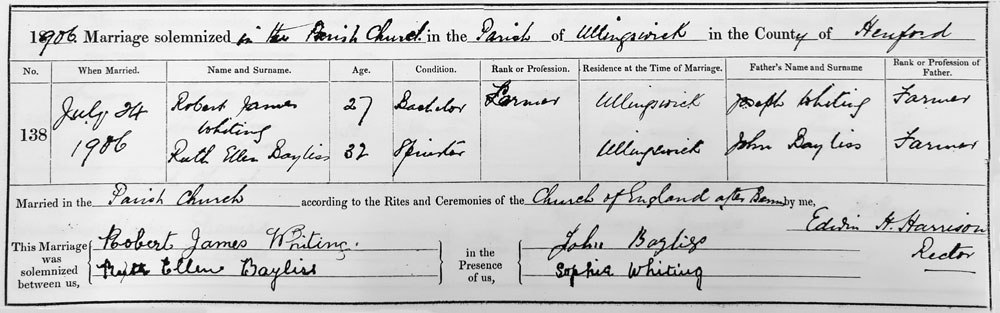 1906. Marriage solemnized in the Parish Church in the Parish of Ullingswick in the County of Hereford
No. When Married. Name and Surname. Age. Condition. Rank or Profession. Residence at the Time of Marriage. Father's Name and Surname Rank or Profession of Father.
138 July 24 1906 Robert James Whiting 27 Bachelor Farmer Ullingswick Joseph Whiting Farmer
Ruth Ellen Bayliss 32 Spinster Ullingswick John Bayliss Farmer
Married in the Parish Church according to the Rites and Ceremonies of the Church of England after Banns by me,
Edwin H. Harrison
Rector
This Marriage was solemnized between us,
Robert James Whiting.
Ruth Ellen Bayliss
in the Presence of us,
John Bayliss
Sophia Whiting